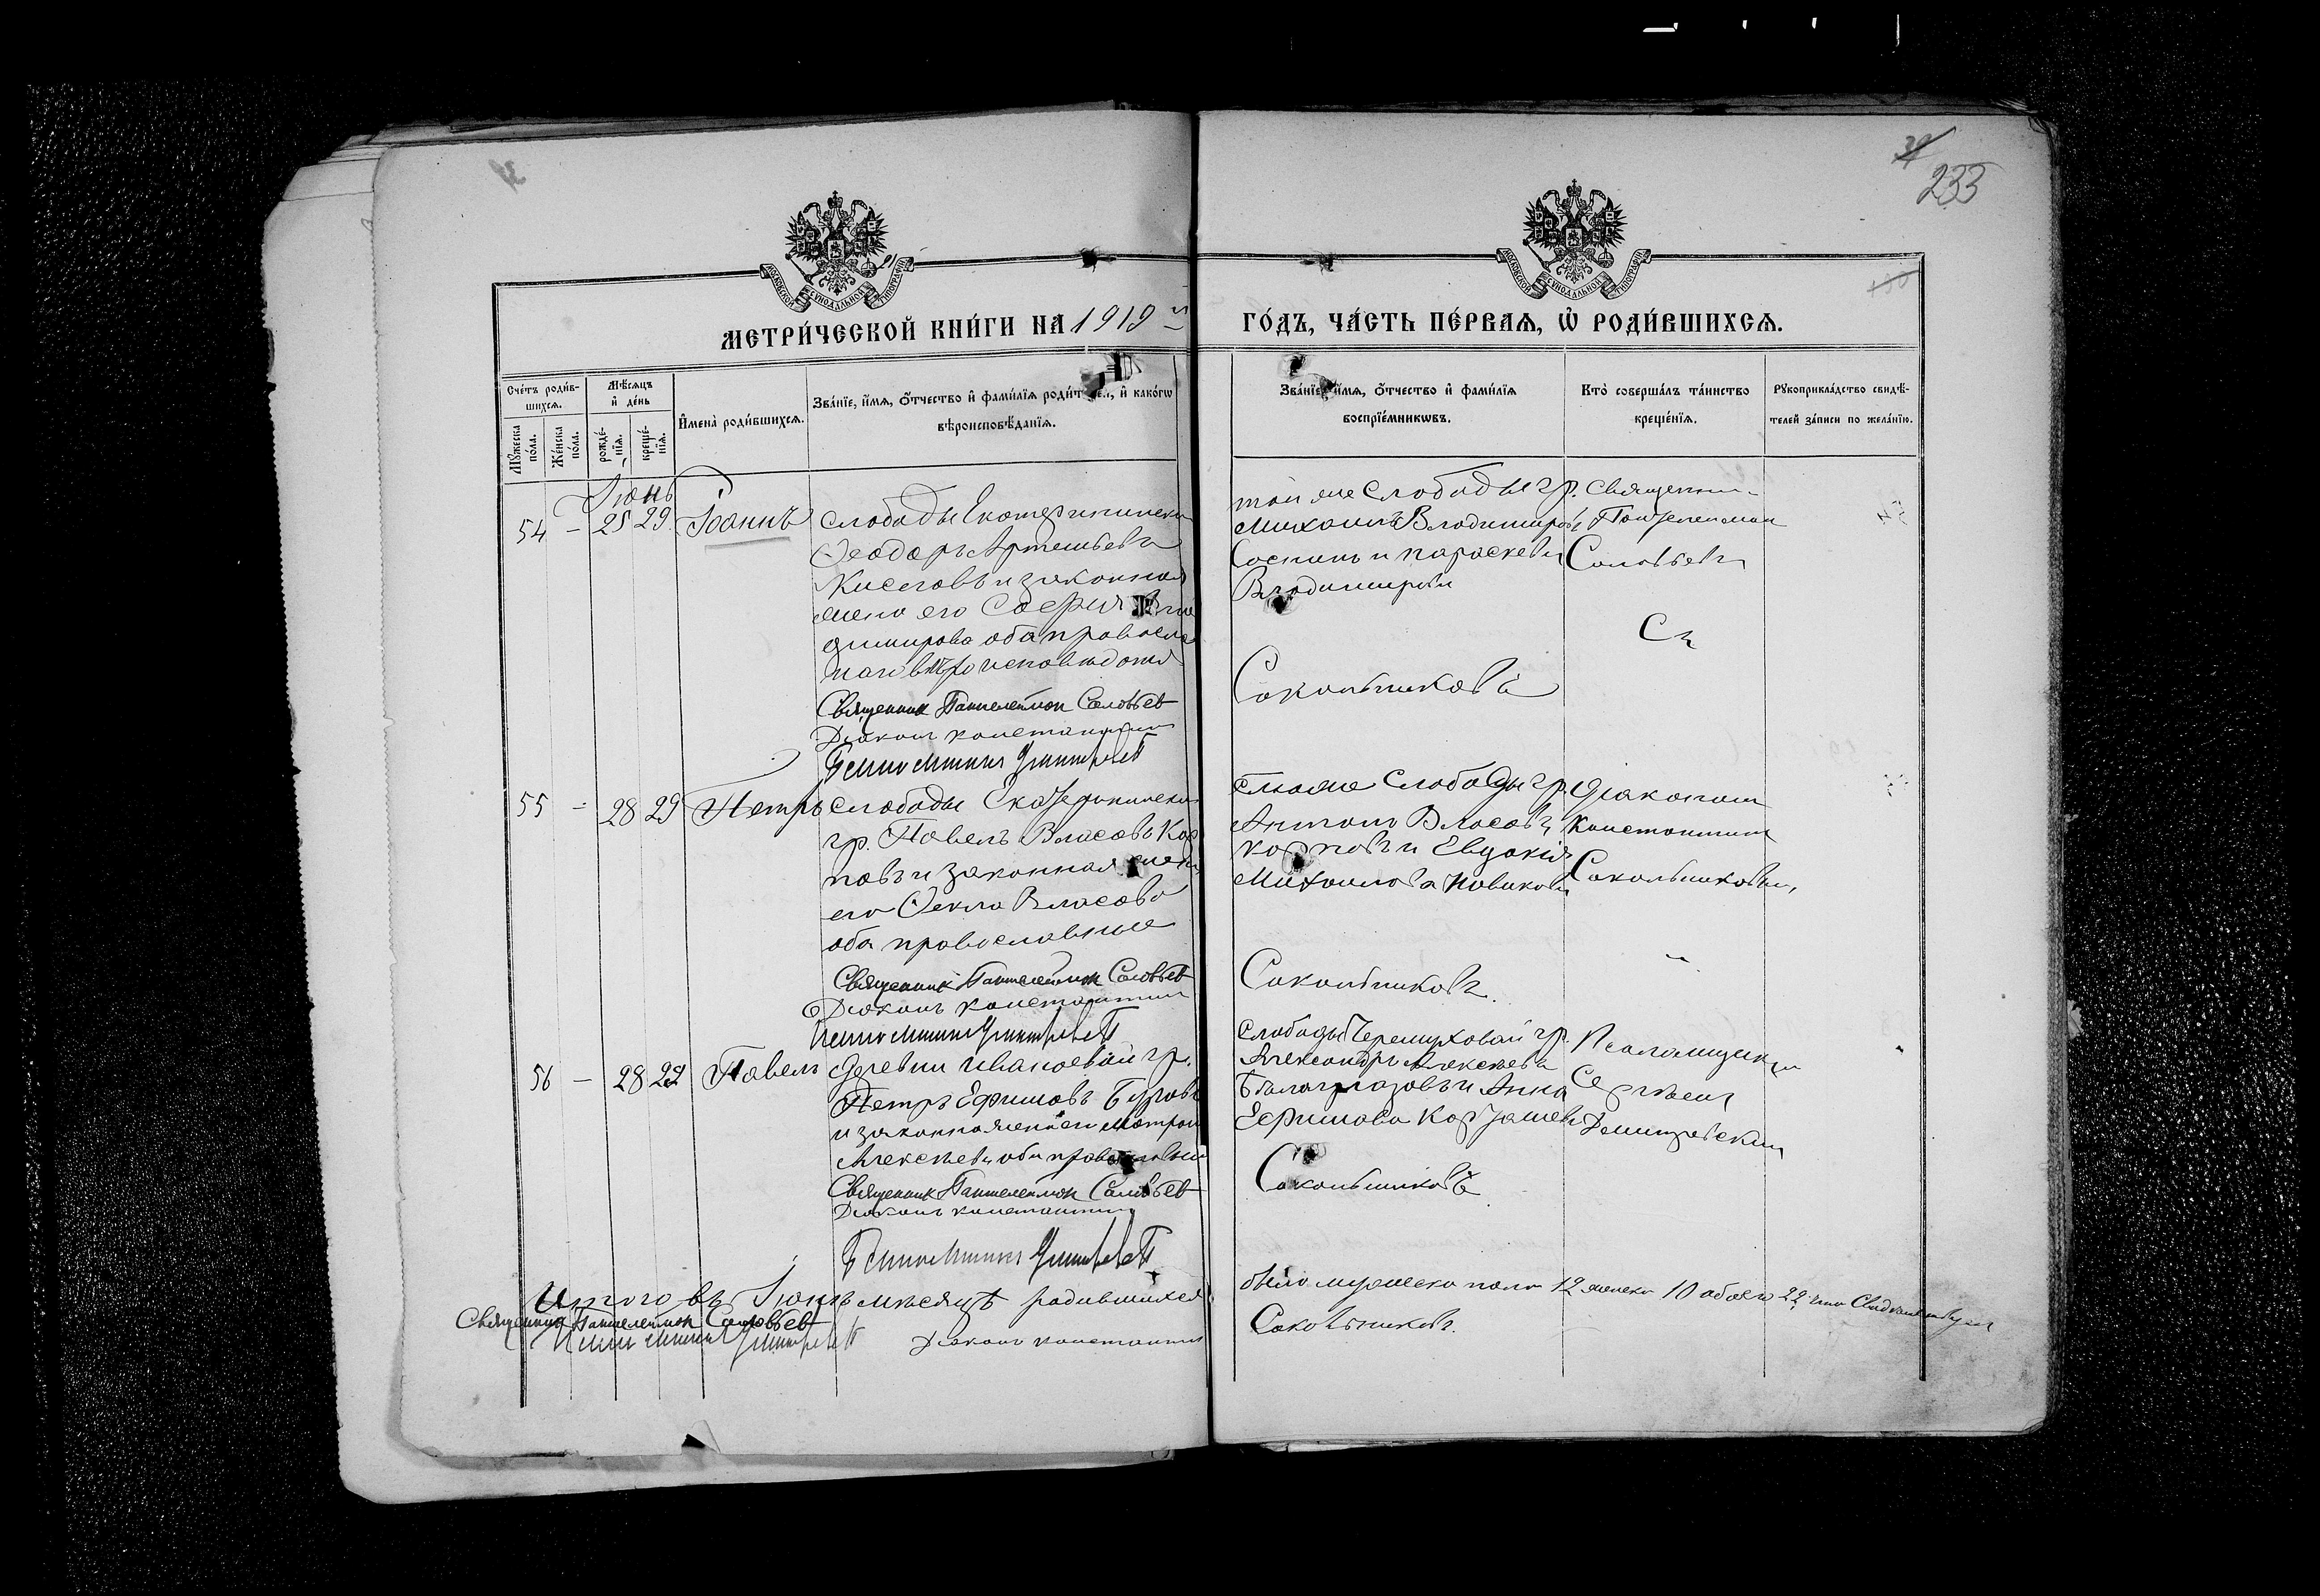 233
МЕТРИ́ЧЕСКОЙ КНИ́ГИ НА 1919 й ГО́ДЪ, ЧА́СТЬ ПЕ́РВАѦ, Ѡ҆ РОДИ́ВШИХСѦ.
Сче́тъ роди́в-
шихсѧ.
Мꙋ́жеска по́ла.
Же́нска по́ла.
Мѣ́сѧцъ и҆ де́нь
рожде́-нїѧ.
креще́-нїѧ.
И҆мена̀ роди́вшихсѧ.
Зва́нїе, и҆́мѧ, ѻ҆́тчество и҆ фами́лїѧ роди́телей, и҆ како́гѡ
вѣроисповѣ́данїѧ.
Зва́нїе, и҆́мѧ, ѻ҆́тчество и҆ фами́лїѧ
воспрїе́мникѡвъ.
Кто̀ соверша́лъ та́инство
креще́нїѧ.
Рꙋкоприкла́дство свидѣ́-
телей за́писи по жела́нїю.
Іюнь
54 - 25 29 Іоаннъ
слободы Екатерининск
Ѳеодоръ Артемьевъ
Киселовъ и законная
жена его Софія Вла
димирова оба правосла
наго вѣроисповѣданія
Священник Пантелеймон Соловьев
Діаконъ Константин
той же слободы гр.
Михаилъ Владимиров
Соскинъ и Параскева
Владимирова
Сокольниковъ
Священник
Пантелеимон
Соловьевъ
55 - 28 29 Петръ
слободы Екатерининской
гр. Павелъ Власовъ Кар
повъ и законная жена
его Ѳекла Власова
оба православные
Священник Пантелеймон Соловьев
Діаконъ Константин
тоже слободы гр.
Антонъ Власовъ
Карповъ и Евдокія
Михаилова Новикова
Сокольниковъ.
Діаконом
Константином
Сокольниковым
56 - 28 29 Павелъ
деревни Ивановой гр.
Петръ Ефимовъ Буровъ
и законная жена его Матрона
Алексѣева оба православные
Священник Пантелеймон Соловьев
Діаконъ Константин
слободы Черемуховой гр.
Александръ Алексѣевъ
Бѣлоглазовъ и Анна
Ефимова
Сокольниковъ
Псаломщик
Сергѣем
Итого въ Іюнѣ мѣсяцѣ родившихся
было мужеска пола 12 женска 10 обоего 22 что Свидѣтельствуем
Священник Пантелеймон Соловьев
Діаконъ Константин Сокольниковъ.